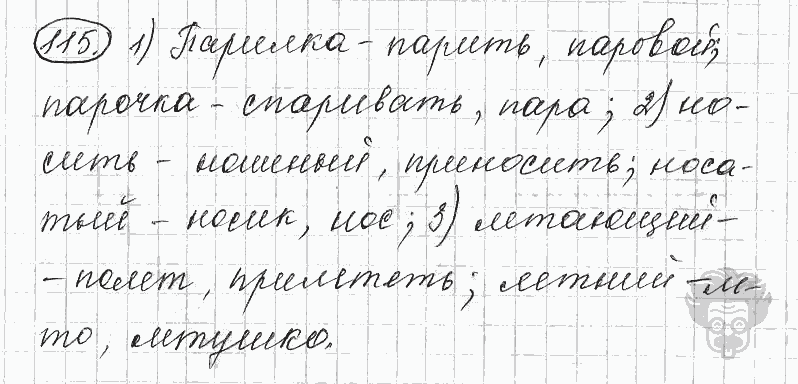 115. 1) Парилка - парить, паровой;
парочка - спаривать, пара; 2) но-
сить - ношеный, приносить; носа-
тый - носик, нос; 3) летающий -
- полет, прилететь; летний - ле-
то, летушко.